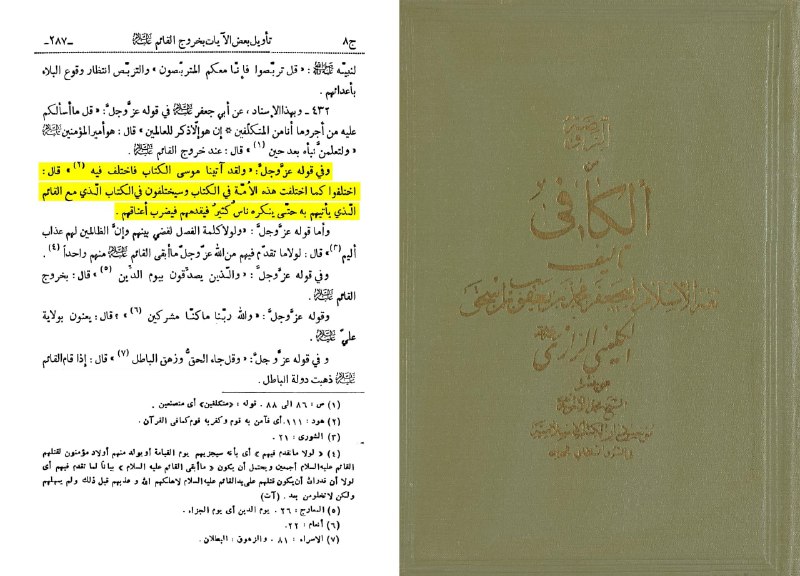 ج٨ تأويل بعض الآيات بخروج القائم عليه السلام -٢٨٧-
لنبيّه صلى الله عليه وآله : « قل تربّصوا فإنّما معكم المتربّصون » والتربّص انتظار وقوع البلاء
بأعدائهم .
٤٣٢ ـ وبهذا الإسناد ، عن أبي جعفر عليه السلام في قوله عزّوجلّ: « قل ما أسألكم
عليه من أجر وما أنا من المتكلّفين * إن هو إلّا ذكر للعالمين » قال : هو أمير المؤمنين عليه السلام
« ولتعلمنّ نبأه بعد حين (١) » قال : عند خروج القائم عليه السلام .
وفي قوله عزّوجلّ: « ولقد آتينا موسى الكتاب فاختلف فيه (٢) » قال :
اختلفوا كما اختلفت هذه الاُمّة في الكتاب وسيختلفون في الكتاب الّذي مع القائم
الّذي يأتيهم به حتّى ينكره ناسٌ كثيرٌ فيقدّمهم فيضرب أعناقهم .
وأما قوله عزّوجلّ: « ولولا كلمة الفصل لقضي بينهم وإنّ الظالمين لهم عذاب
أليم (٣) » قال : لولا ما تقدّم فيهم من الله عزّوجلّ ما أبقى القائم عليه السلام منهم واحداً (٤) .
وفي قوله عزّوجلّ: « والّذين يصدّقون بيوم الدّين (٥) » قال : بخروج
القائم عليه السلام .
وقوله عزّوجلّ: « والله ربّنا ما كنّا مشركين (٦) » ؟ قال : يعنون بولاية
عليّ عليه السلام .
و في قوله عزّوجلّ: « وقل جاء الحقّ وزهق الباطل (٧) » قال : إذا قام القائم
عليه السلام ذهبت دولة الباطل .
(١) ص : ٨٦ الى ٨٨ . قوله : «متكلفين» أى متصنعين .
(٢) هود : ١١١. أى فآمن به قوم وكفر به قوم كما فى القرآن .
(٣) الشورى : ٢١ .
(٤) « لولا ما تقدم فيهم » أى بأنه سيجزيهم يوم القيامة أو يولد منهم أولاد مؤمنون لقتلهم
القائم عليه السلام أجمعين ويحتمل أن يكون « ما أبقى القائم عليه السلام » بياناً لما تقدم فيهم أى
لولا أن قدر الله أن يكون قتلهم على يد القائم عليه السلام لاهلكهم الله و عذبهم قبل ذلك ولم يمهلهم
ولكن لا تخلو من بعد . (آت)
(٥) المعارج : ٢٦ . يوم الدين أى يوم الجزاء .
(٦) أنعام : ٢٢.
(٧) الاسراء : ٨١ . والزهوق : البطلان .
الكافي
تأليف
ثقة الإسلام أبي جعفر محمد بن يعقوب بن إسحق
الكليني الرازي